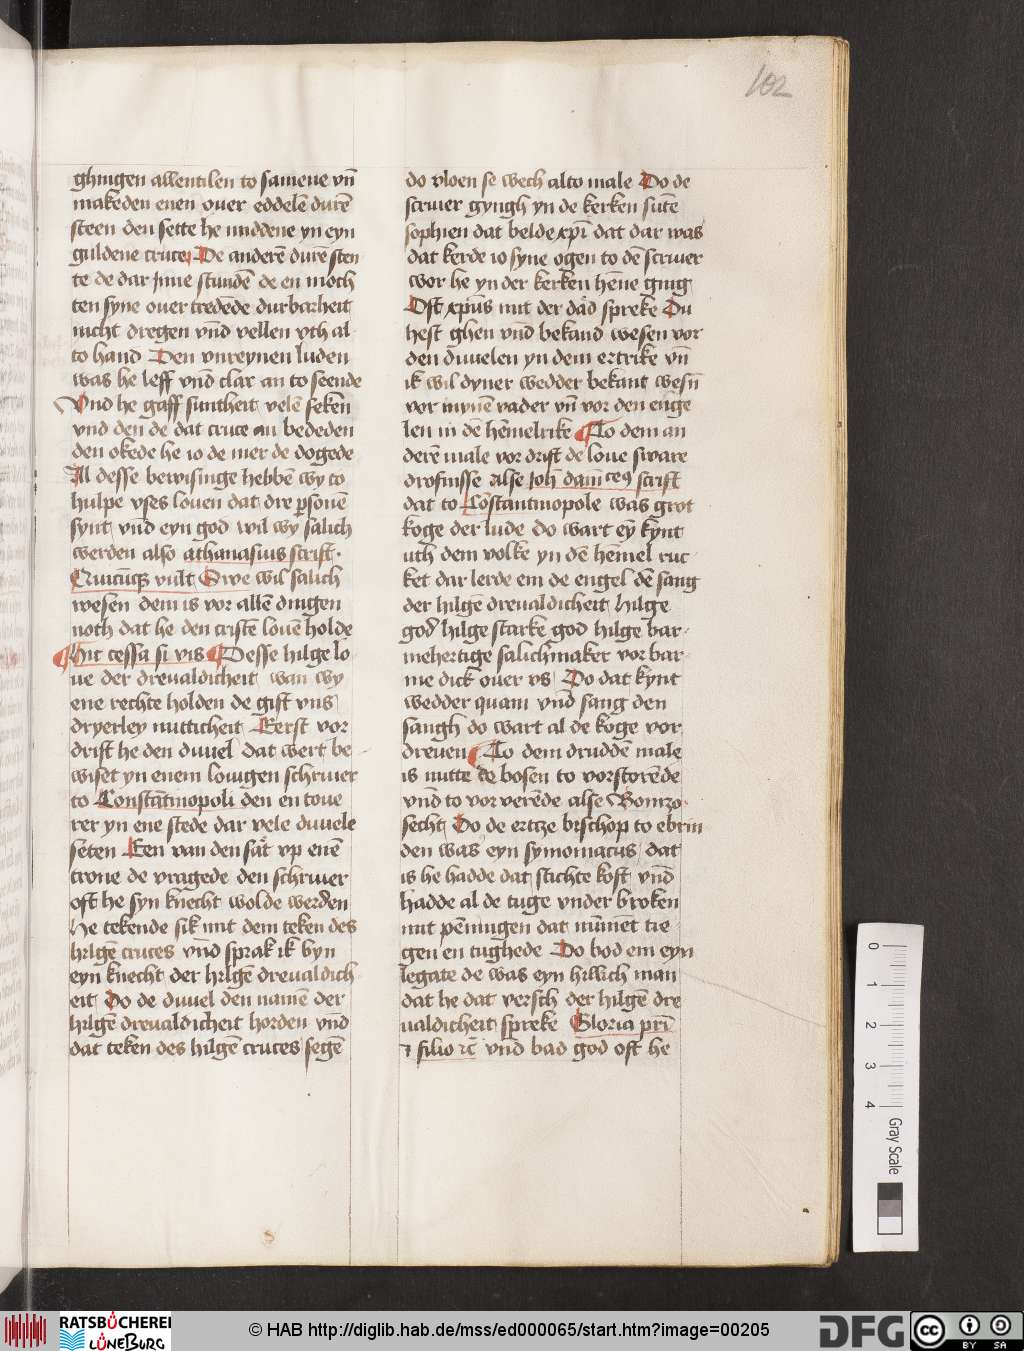 102
ghingen allentilen to samene vn̄
makeden enen ouer eddelē durē
steen den sette he middene yn eyn
guldene cruce De anderē durē sten
te de dar ynne stundē de en moch
ten syne ouer tredede durbarheit
nicht dregen vnd vellen vth al
to hand Den vnreynen luden
was he leff vnd clar an to seende
Vnd he gaff suntheit velē seken
vnd den de dat cruce an bededen
den okede he io de mer de dogede
Al desse bewisinge hebben wy to
hulpe vses louen dat dre ꝑsonē
synt vnd eyn god wil wy salich
werden also athanasius scrift
Quicūqꝫ vult Swe wil salich
wesen dem is vor allē dingen
noth dat he den cristē louē holde
Hir cessa si vis Desse hilge lo
ue der dreualdicheit wan wy
ene rechte holden de gift vns
dryerley nutticheit Eerst vor
drift he den duuel dat wert be
wiset yn enem louigen schriuer
to Constātinopoli den en toue
rer yn ene stede dar vele duuele
seten Een van den sat vp enē
trone de vragede den schriuer
oft he syn knecht wolde werden
He tekende sik mit dem teken des
hilgē cruces vnd sprak ik byn
eyn knecht der hilgē dreualdich
eit Do de duuel den namē der
hilgē dreualdicheit horden vnd
dat teken des hilgē cruces segē
do vloen se wech alto male Do de
scriuer gyngh yn de kerken sūte
sophien dat belde xp̄i dat dar was
dat kerde io syne ogen to dē scriuer
wor he yn der kerken hēne ging
Oft xp̄us mit der dad spreke Du
hest ghen vnd bekand wesen vor
den duuelen yn dem ertrike vn̄
ik wil dyner wedder bekant wesn̄
vor mynē vader vn̄ vor den enge
len in dē hēmelrike To dem an
derē male vor drift de loue sware
drofnisse alse Joh̄ damceꝰ scrift
dat to Cōstantinopole was grot
koge der lude do wart ey̅ kynt
uth dem volke yn dē hēmel ruc
ket dar lerde em de engel dē sang
der hilgē dreualdicheit Hilge
god hilge starke god hilge bar
mehertige salichmaker vor bar
me dick ouer vs Do dat kynt
wedder quam vnd sang den
sangh do wart al de koge vor
dreuen To dem druddē male
is nutte de bosen to vorstorēde
vnd to vor verēde alse Bonizo
secht Do de ertze bischop to ebrin
den was eyn symoniacus dat
is he hadde dat stichte koft vnd
hadde al de tuge vnder broken
mit pēningen dat nūmēt tie
gen en tughede Do bod em eyn
legate de was eyn hillich man
dat he dat versch der hilgē dre
ualdicheit spreke Gloria pr̄i
⁊ filio ꝛc̄ vnd bad god oft he
0
1
2
3
4
Gray Scale
RATSBÜCHEREI
LÜNEBURG
© HAB http://diglib.hab.de/mss/ed000065/start.htm?image=00205
DFG
cc
BY SA